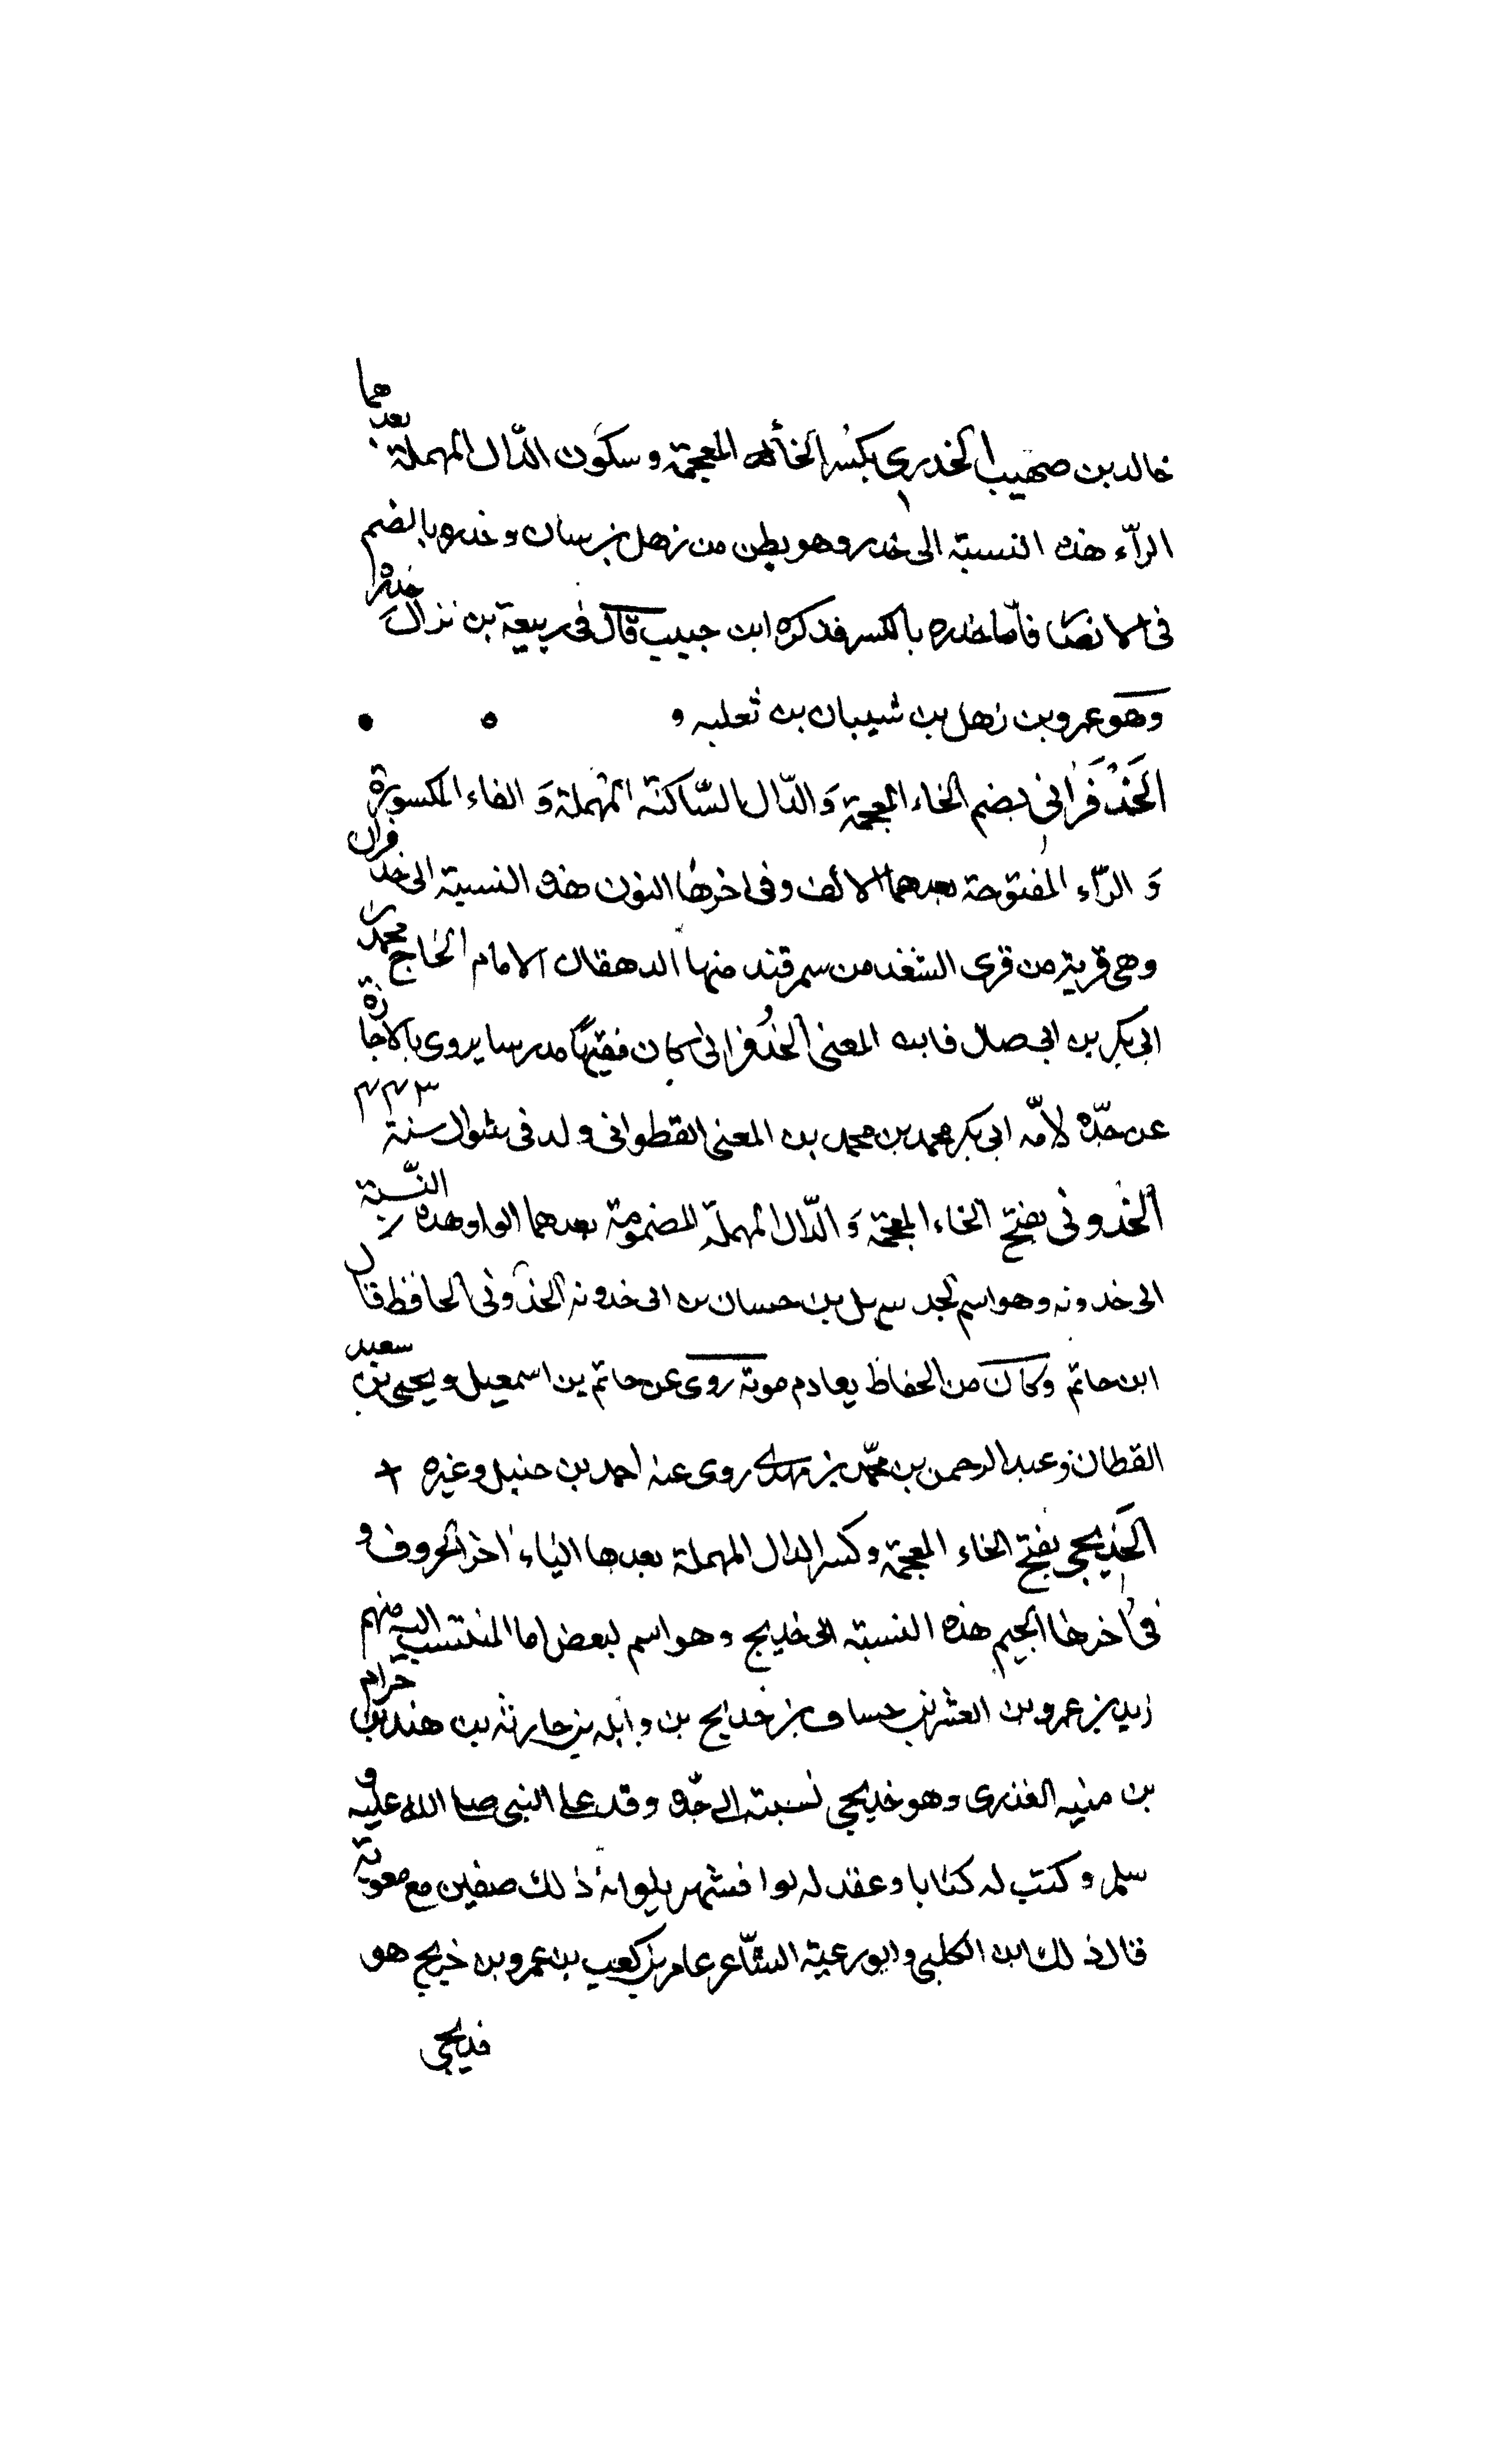 خالد بن صهيب الخدري بكسر الخاء المعجمة و سكون الدّال المهملة بعدهما
الرآء هذه النسبة الى خدره وهو بطن من ذهل بن شيبان و خدره بالضم
فى الانصار فاما خدره بالكسر فذكره ابن حبيب قال فى ربيعة بن نزار خدرة
وهو عمرو بن ذهل بن شيبان بن ثعلبه و
الخُدْفَراني بضم الخاء المعجمة وَ الدّال السّاكنة المهملة وَ الفاء المكسورة
وَ الرّاء المفتوحة بعدهما الالف و فى اخرها النون هذه النسبة الى خدفران
وهى قرية من قرى السّغد من سمرقند منها الدهقان الامام الحاج محمد بن
ابى بكر بن ابى صال المعنى الخُدفراني كان فقيهًا مدرسا يروى بالاجازة
عن جدّه لامّه ابى بكر محمد بن محمد بن المعنى القطوانى ولد فى شوال سنة ٤٤٣
الخدونى بفتح الخاء المعجمة وَ الدّال المهملة المضمومة بعدهما الواو هذه النّسبة
الى خدونه وهو اسم لجد سهل بن حسان بن ابى خدونه الخدّونى الحافظ قال
ابن حاتم وكان من الحفاظ موته روى عن حاتم بن اسمعيل و يحيى بن سعيد
القطان و عبد الرحمن بن محمّد بن مهدى روى عنه احمد بن حنبل وغيره
الخَديجى بفتح الخاء المعجمة و كسر الدال المهملة بعدها الياء اخر الحروف و
فى اخرها الجيم هذه النسبة الى خديج وهو اسم لبعض اما المنتسب اليه منهم
زيد بن عمرو بن خديج بن وايله بن حارثه بن هند بن حرام
بن العذرى وهو خديجى نسبة الى جدّه و فد على النبى صلى الله عليه و
سلم و كتب له كتابا و عقد له لوا فشهد بلوائه ذلك صفين مع معوية
قال ذلك ابن الكلبى و ابو رعية الشّاعر عامر بن كعب بن عمرو بن خديج هو
خديجى